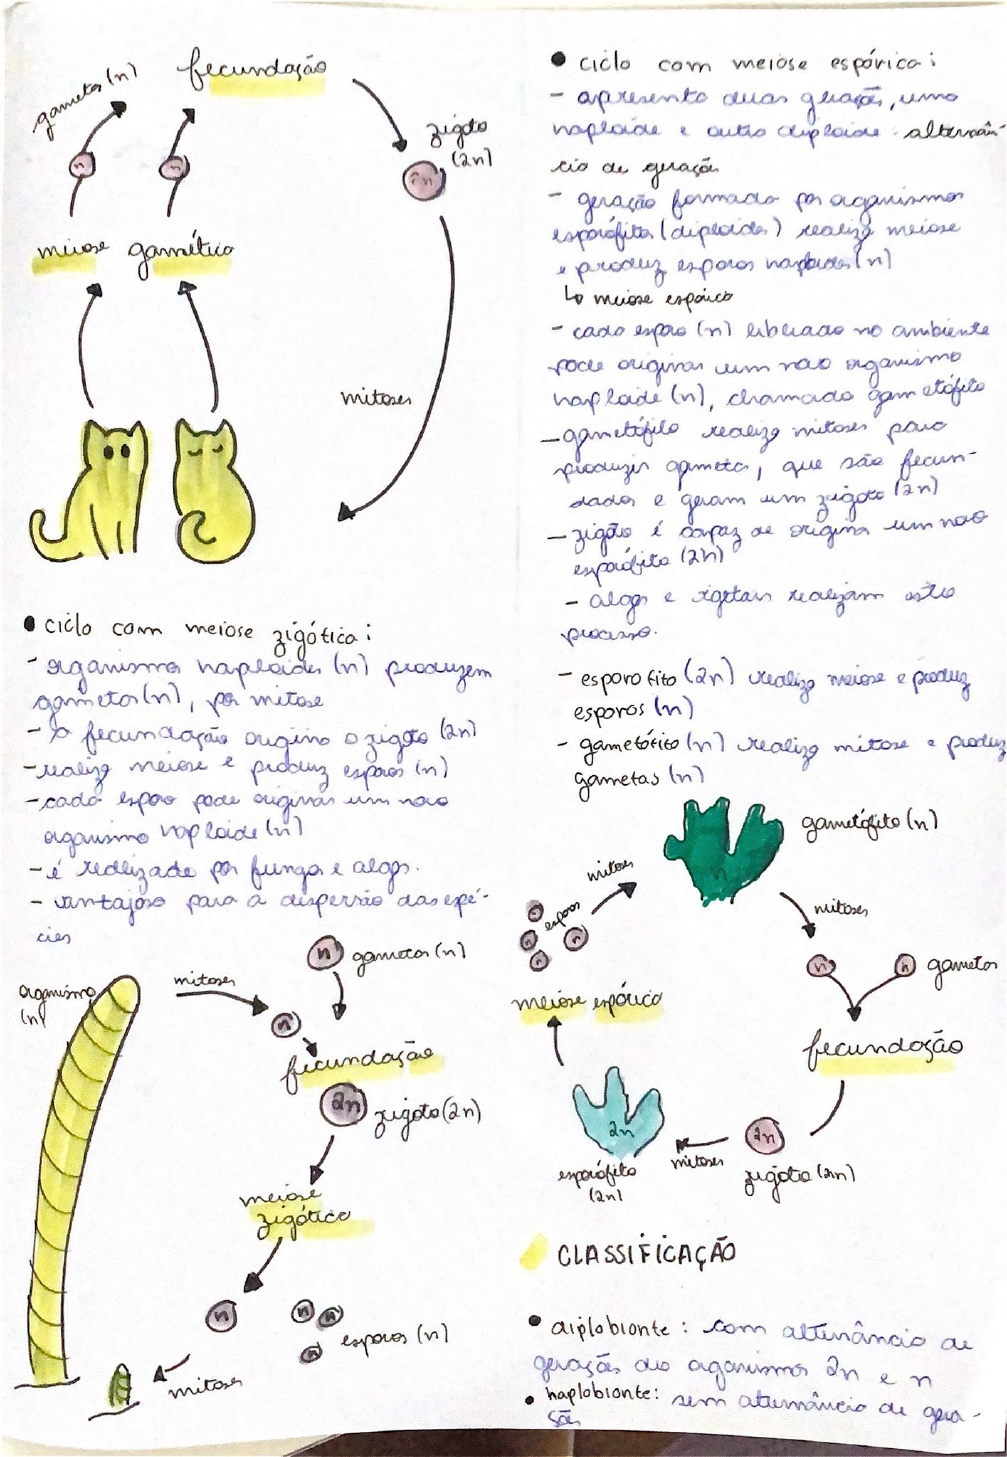 fecundação
gametas (n)
n
n
zigoto
(2n)
2n
meiose gamética
mitoses
● ciclo com meiose zigótica:
- organismos haploides (n) produzem
gametas (n), por mitose
- a fecundação origina o zigoto (2n)
- realiza meiose e produz esporos (n)
- cada esporo pode originar um novo
organismo haploide (n)
- é realizade por fungos e algas.
- vantajoso para a dispersão das espé-
cies
organismo
(n)
mitoses
n
gametas (n)
n
fecundação
2n
zigoto (2n)
meiose
zigótica
n
n
n
n
esporos (n)
mitoses
● ciclo com meiose espórica:
- apresenta duas gerações, uma
haploide e outra diploide. alternân-
cia de geração
- geração formada por organismos
esporófitos (diploides) realiza meiose
e produz esporos haploides (n)
↳ meiose espórica
- cada esporo (n) liberado no ambiente
pode originar um novo organismo
haploide (n), chamado gametófito
- gametófito realiza mitoses para
produzir gametas, que são fecun-
dados e geram um zigoto (2n)
- zigoto é capaz de origina um novo
esporófito (2n)
- algas e vegetais realizam este
processo.
- esporofito (2n) realiza meiose e produz
esporos (n)
- gametófito (n) realiza mitose e produz
gametas (n)
gametófito (n)
n
mitoses
esporos
n
n
n
n
mitoses
n
n
gametas
meiose espórica
fecundação
2n
esporófito
(2n)
mitoses
2n
zigoto (2n)
CLASSIFICAÇÃO
● diplobionte: com alternância de
gerações de organismos 2n e n
● haplobionte: sem alternância de gera-
ções